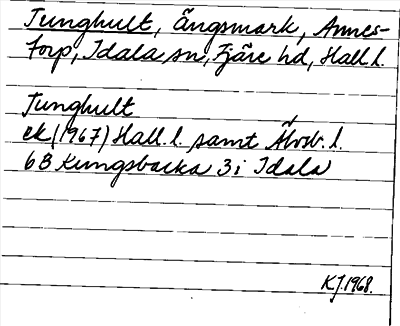 Tunghult, Ängsmark, Annes-
torp, Idala sn, Fjäre hd, Hall. l.
Tunghult
ek (1967) Hall. l. samt Älvsb. l.
6B Kungsbacka 3i Idala
KJ. 1968.